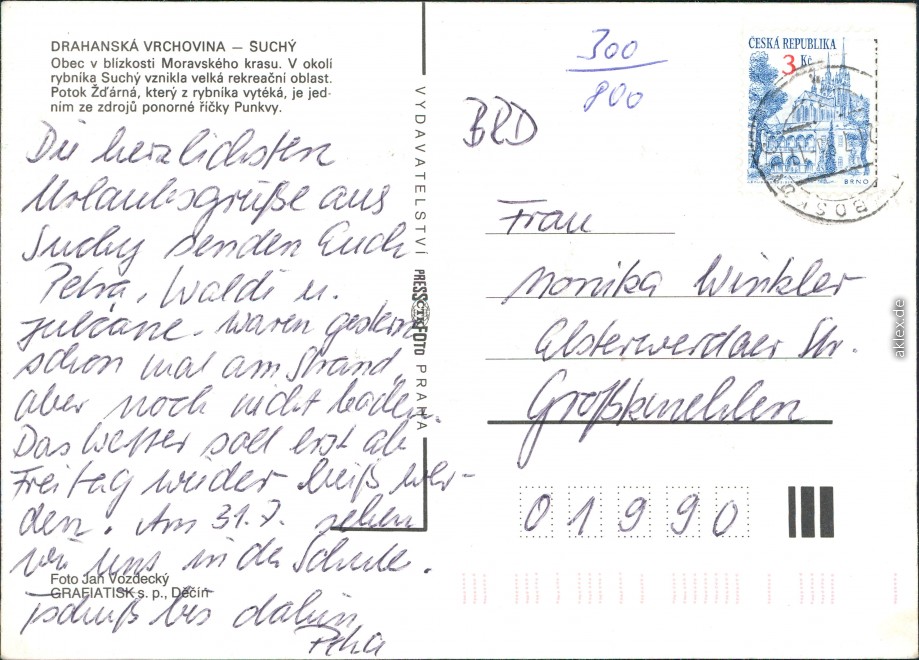 DRAHANSKÁ VRCHOVINA — SUCHÝ
Obec v blízkosti Moravského krasu. V okolí
rybníka Suchý vznikla velká rekreační oblast.
Potok Žďárná, který z rybníka vytéká, je jed-
ním ze zdrojů ponorné říčky Punkvy.
Die herzlichsten
Urlaubsgrüße aus
Suchy senden Euch
Petra, Waldi u.
waren gestern
schon mal am Strand,
aber noch nicht baden.
Das Wetter soll erst ab
Freitag wieder heiß wer-
den. Am 31.7. sehen
wir uns in der Schule.
Tschüß bis dahin
Petra
Foto Jan Vozdecký
GRAFIATISK s. p., Děčín
VYDAVATELSTVÍ PRESSFOTO PRAHA
ČTK
300
800
BRD
ČESKÁ REPUBLIKA
3 Kč
BRNO
BOSKO
Frau
Monika Winkler
Elsterwerdaer Str.
Großkmehlen
01990
aklex.de